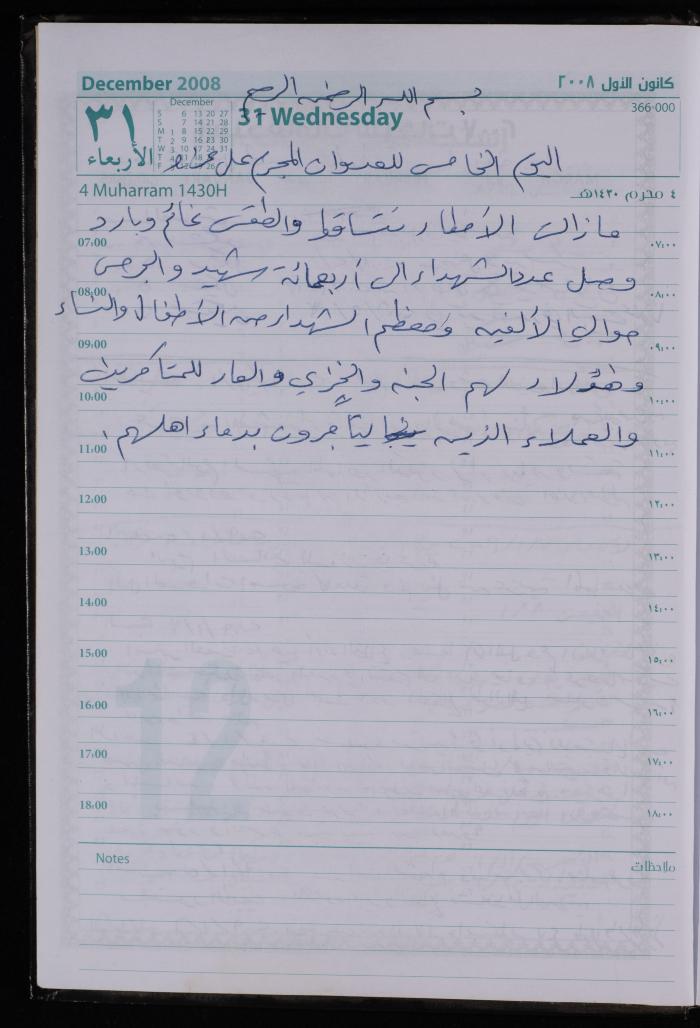 December 2008 كانون الأول ٢٠٠٨
بسم الله الرحمن الرحيم
٣١ الأربعاء
December
S 6 13 20 27
S 7 14 21 28
M 1 8 15 22 29
T 2 9 16 23 30
W 3 10 17 24 31
T 4 11 18
F
31 Wednesday
366-000
اليوم الخامس للعدوان المجرم على
4 Muharram 1430H ٤ محرم ١٤٣٠هـ
مازالت الأمطار تتساقط والطقس غائم وبارد
07:00 ٠٧:٠٠
وصل عدد الشهداء الى أربعمائة شهيد والجرحى
08:00 ٠٨:٠٠
حوالي الألفين ومعظم الشهداء من الأطفال والنساء
09:00 ٠٩:٠٠
وهؤلاء لهم الجنة والخزي والعار للمتآمرين
10:00 ١٠:٠٠
والعملاء الذين يتاجرون بدماء اهلهم.
11:00 ١١:٠٠
12:00 ١٢:٠٠
13:00 ١٣:٠٠
14:00 ١٤:٠٠
15:00 ١٥:٠٠
16:00 ١٦:٠٠
17:00 ١٧:٠٠
18:00 ١٨:٠٠
12
Notes ملاحظات